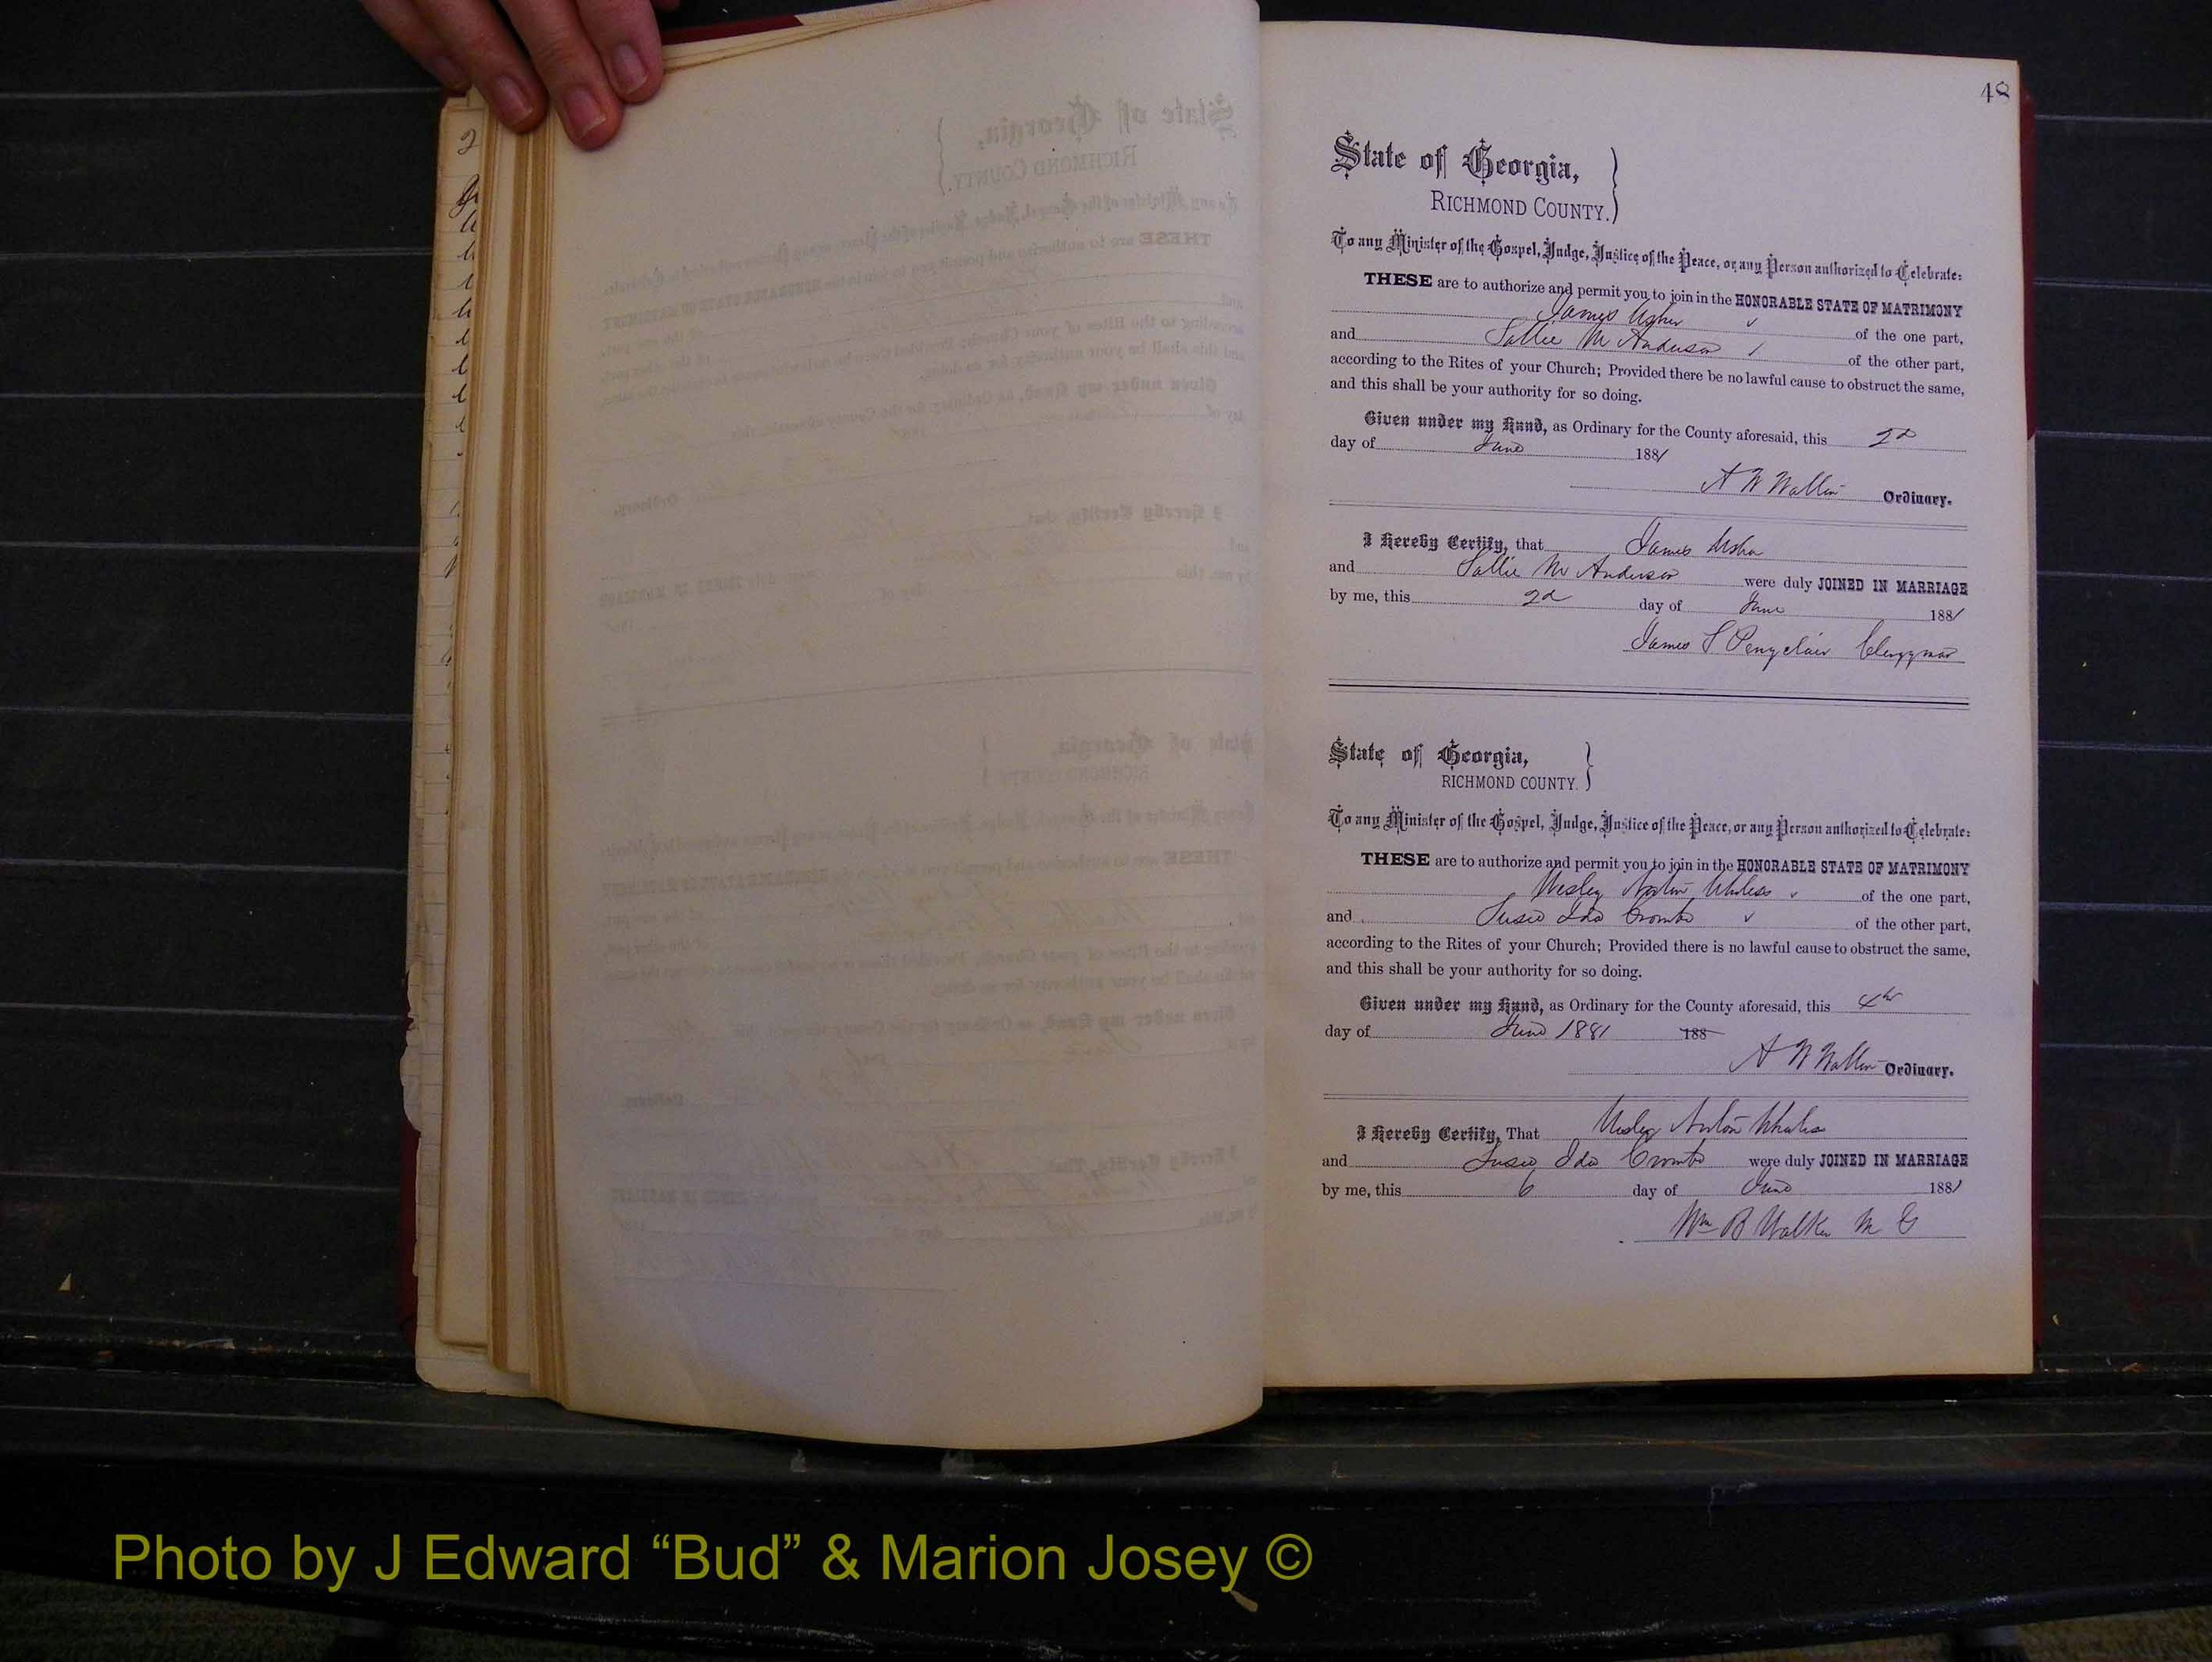 48
State of Georgia,
RICHMOND COUNTY.
To any Minister of the Gospel, Judge, Justice of the Peace, or any Person authorized to Celebrate:
THESE are to authorize and permit you to join in the HONORABLE STATE OF MATRIMONY
James Usher of the one part,
and Sallie M Anderson of the other part,
according to the Rites of your Church; Provided there be no lawful cause to obstruct the same,
and this shall be your authority for so doing.
Given under my Hand, as Ordinary for the County aforesaid, this 2d
day of June 1881
A W Walton Ordinary.
I Hereby Certify, that James Usher
and Sallie M Anderson were duly JOINED IN MARRIAGE
by me, this 2d day of June 1881
James S Clergyman
State of Georgia,
RICHMOND COUNTY.
To any Minister of the Gospel, Judge, Justice of the Peace, or any Person authorized to Celebrate:
THESE are to authorize and permit you to join in the HONORABLE STATE OF MATRIMONY
Wesley Norton of the one part,
and Susie Ida of the other part,
according to the Rites of your Church; Provided there is no lawful cause to obstruct the same,
and this shall be your authority for so doing.
Given under my Hand, as Ordinary for the County aforesaid, this 4th
day of June 1881 188
A W Walton Ordinary.
I Hereby Certify, That Wesley Norton
and Susie Ida were duly JOINED IN MARRIAGE
by me, this 6 day of June 1881
Wm B Walker M G
Photo by J Edward “Bud” & Marion Josey ©